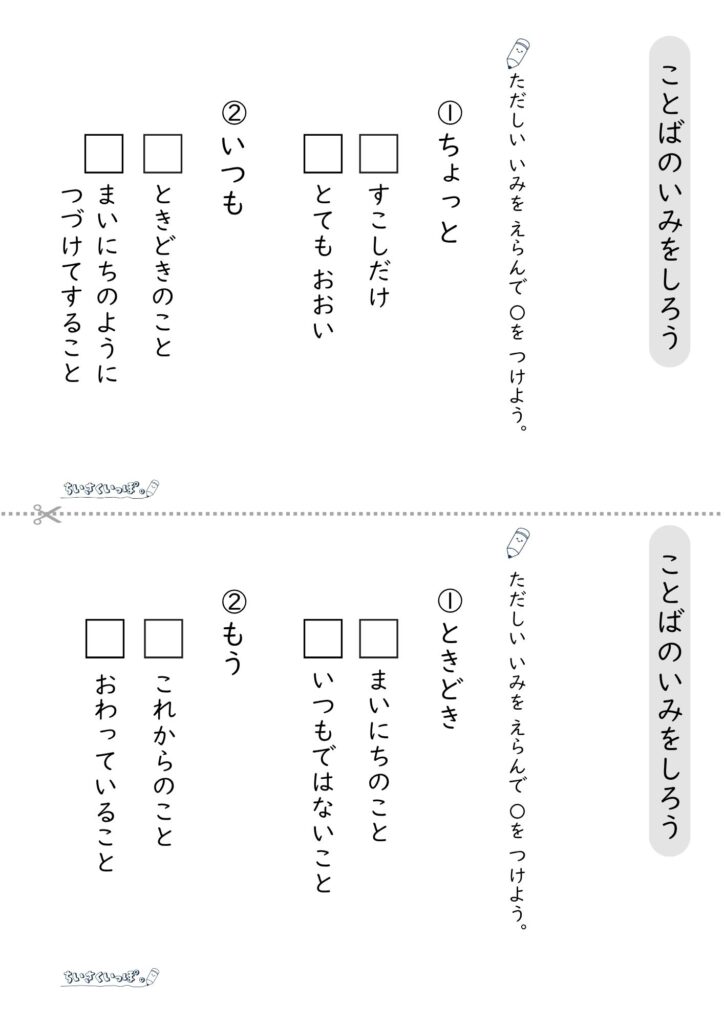 ことばのいみをしろう
ただしい いみを えらんで ○を つけよう。
①ちょっと
すこしだけ
とても おおい
②いつも
ときどきのこと
まいにちのように
つづけてすること
ちいさくいっぽ。
ことばのいみをしろう
ただしい いみを えらんで ○を つけよう。
①ときどき
まいにちのこと
いつもではないこと
②もう
これからのこと
おわっていること
ちいさくいっぽ。